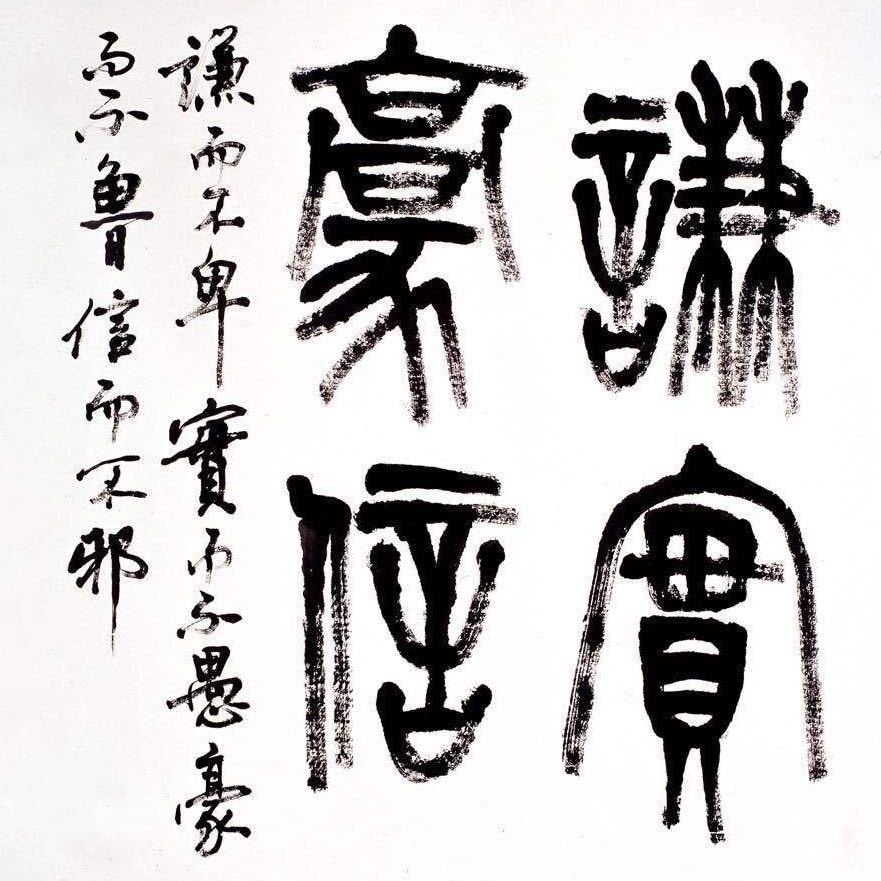 謙實
豪信
謙而不卑實而不愚豪
而不魯信而不邪